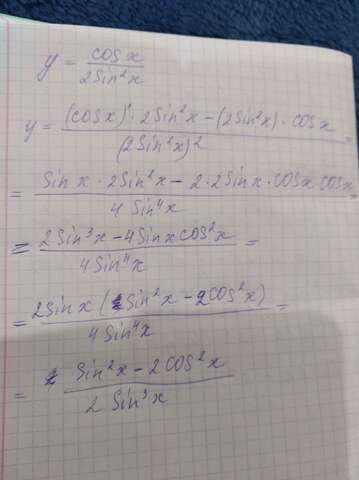 y = cosx / 2sin²x
y = (cosx)' · 2sin²x - (2sin²x) · cosx / (2sin²x)² =
= sinx · 2sin²x - 2 · 2sinx · cosx cosx / 4sin⁴x =
= 2sin³x - 4sinxcos²x / 4sin⁴x =
= 2sinx (sin²x - 2cos²x) / 4sin⁴x =
= sin²x - 2cos²x / 2sin³x